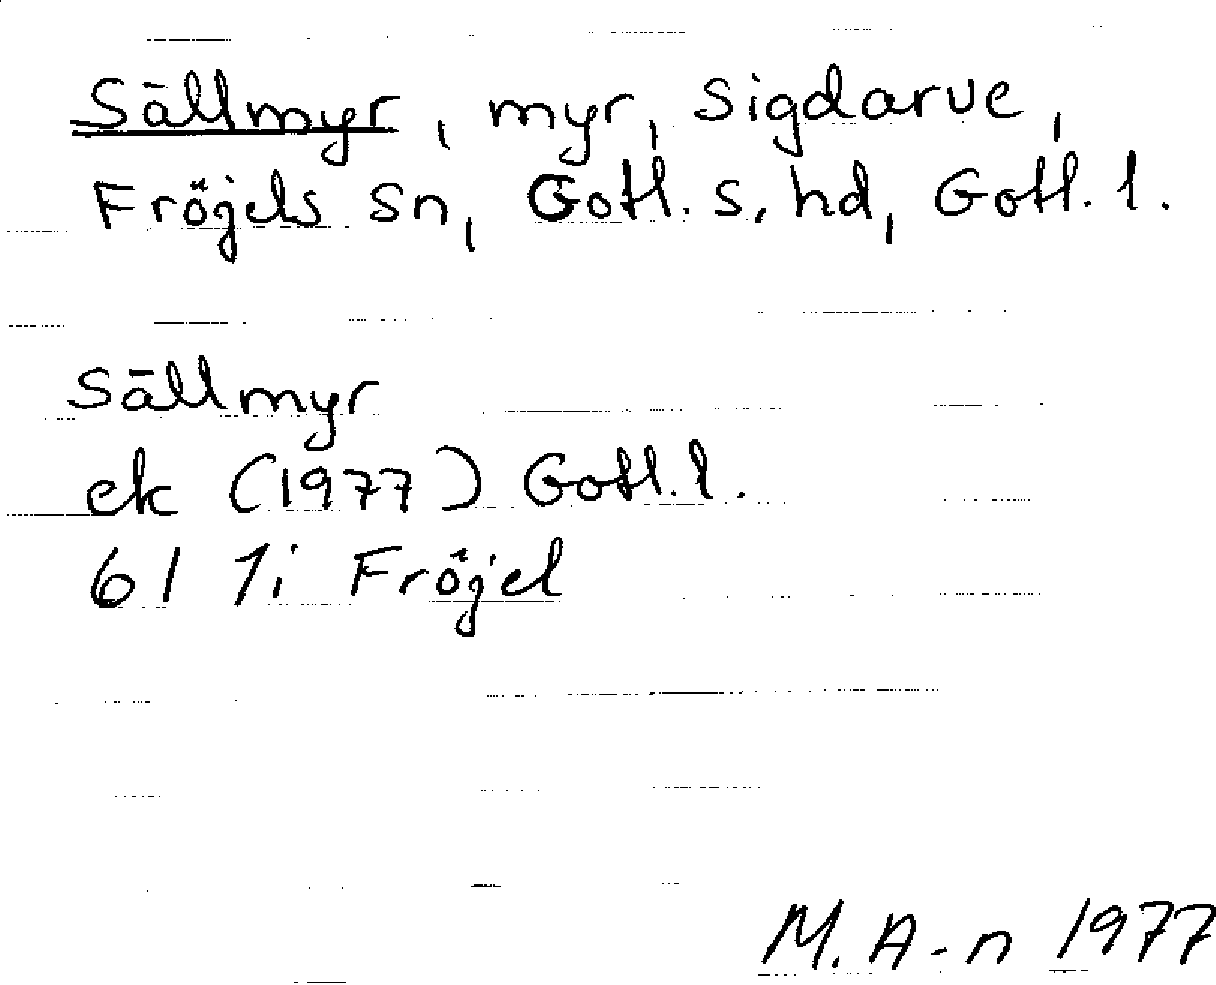 Sällmyr, myr, Sigdarve,
Fröjels sn, Gotl. s. hd, Gotl. l.
Sällmyr
ek (1977) Gotl. l.
6I 1i Fröjel
M. A-n 1977